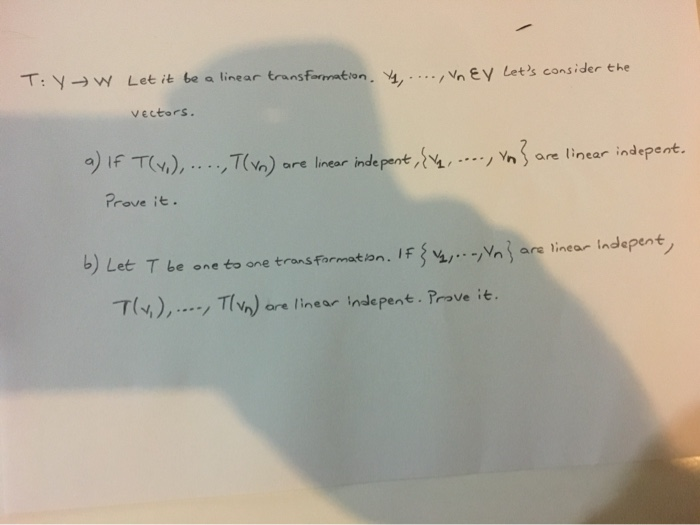 T: V → W Let it be a linear transformation. V1, ...., Vn ∈ V Let's consider the
vectors.
a) IF T(V1), ...., T(Vn) are linear indepent, {V1, ...., Vn} are linear indepent.
Prove it.
b) Let T be one to one transformation. IF {V1, ..., Vn} are linear indepent,
T(V1), ...., T(Vn) are linear indepent. Prove it.